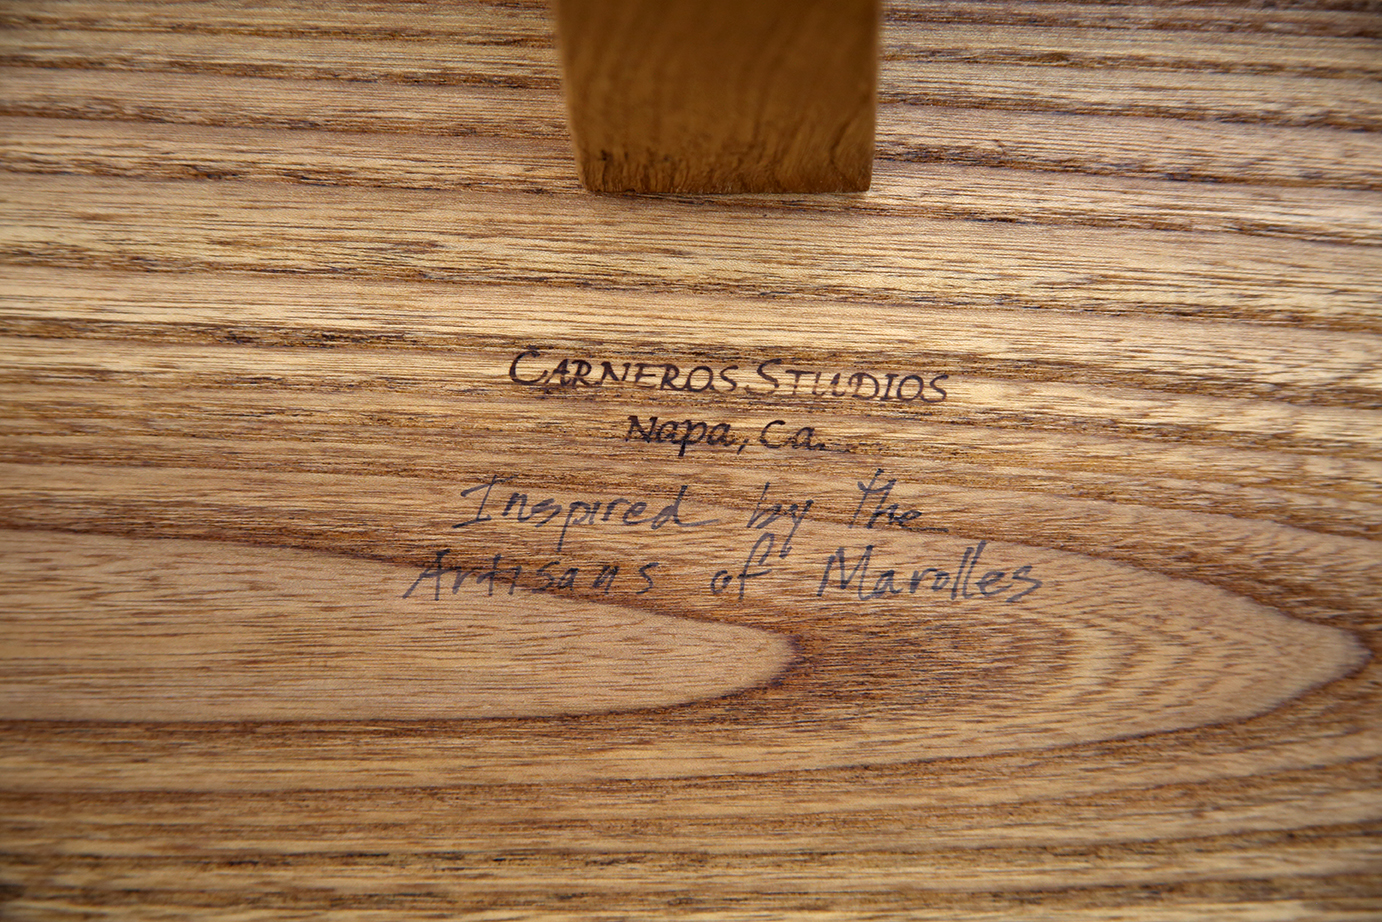 CARNEROS STUDIOS
Napa, Ca.
Inspired by the
Artisans of Marolles